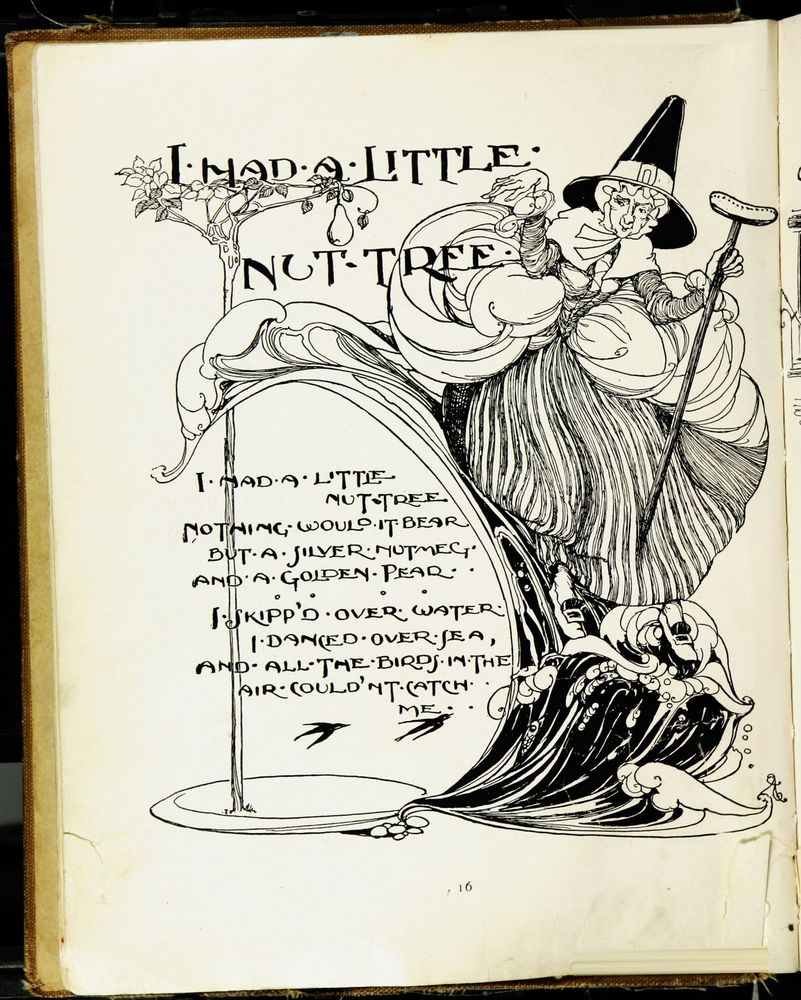 I·HAD·A·LITTLE·
NUT·TREE·
I·HAD·A·LITTLE
NUT·TREE
NOTHING·WOULD·IT·BEAR
BUT·A·SILVER·NUTMEG·
AND·A·GOLDEN·PEAR··
I·SKIPP'D·OVER·WATER·
I·DANCED·OVER·SEA,
AND·ALL·THE·BIRDS·IN·THE
AIR·COULD'NT·CATCH··
ME··
16